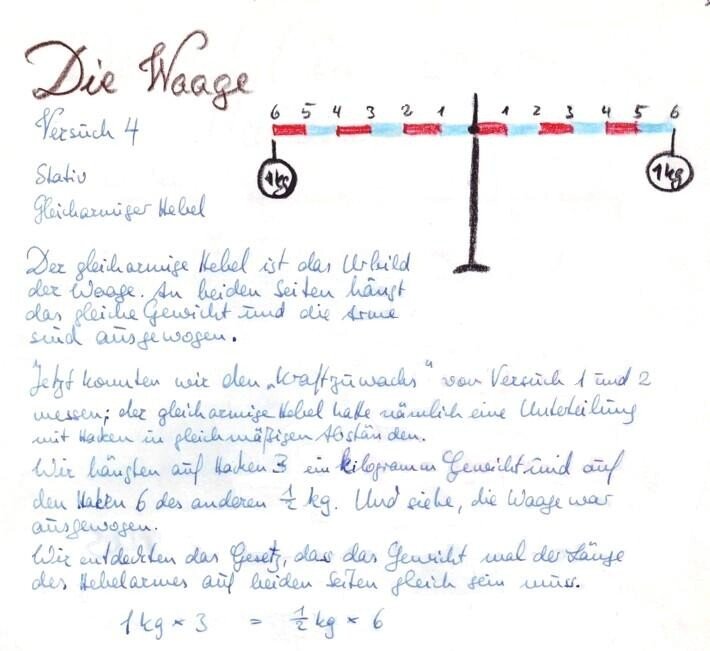 Die Waage
6 5 4 3 2 1 1 2 3 4 5 6
Versuch 4
1kg 1kg
Stativ
Gleicharmiger Hebel
Der gleicharmige Hebel ist das Urbild
der Waage. An beiden Seiten hängt
das gleiche Gewicht und die Arme
sind ausgewogen.
Jetzt konnten wir den „Kraftzuwachs“ von Versuch 1 und 2
messen; der gleicharmige Hebel hatte nämlich eine Unterteilung
mit Hacken in gleichmäßigen Abständen.
Wir hängten auf Hacken 3 ein Kilogramm Gewicht und auf
den Haken 6 des anderen ½ kg. Und siehe, die Waage war
ausgewogen.
Wir entdeckten das Gesetz, das das Gewicht mal der Länge
des Hebelarmes auf beiden Seiten gleich sein muss.
1 kg × 3 = ½ kg × 6